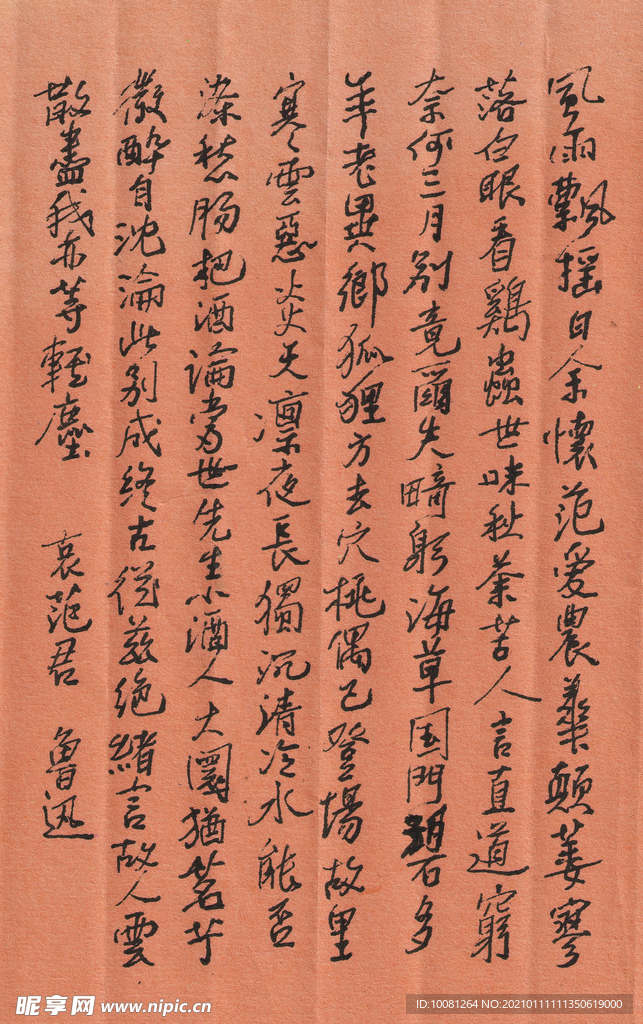 風雨飄搖日余懷范愛農華顛萎寥
落白眼看鷄蟲世味秋荼苦人言直道窮
奈何三月別竟爾失畸躬海草国門碧多
年老異鄉狐狸方去穴桃偶已登場故里
寒雲惡炎天凛夜長獨沉清冷水能否
滌愁腸把酒論當世先生小酒人大圜猶茗艼
微醉自沈淪此別成終古從兹絶緒言故人雲
散盡我亦等輕塵 哀范君 魯迅
昵享网 www.nipic.cn
ID:10081264 NO:20210111111350619000